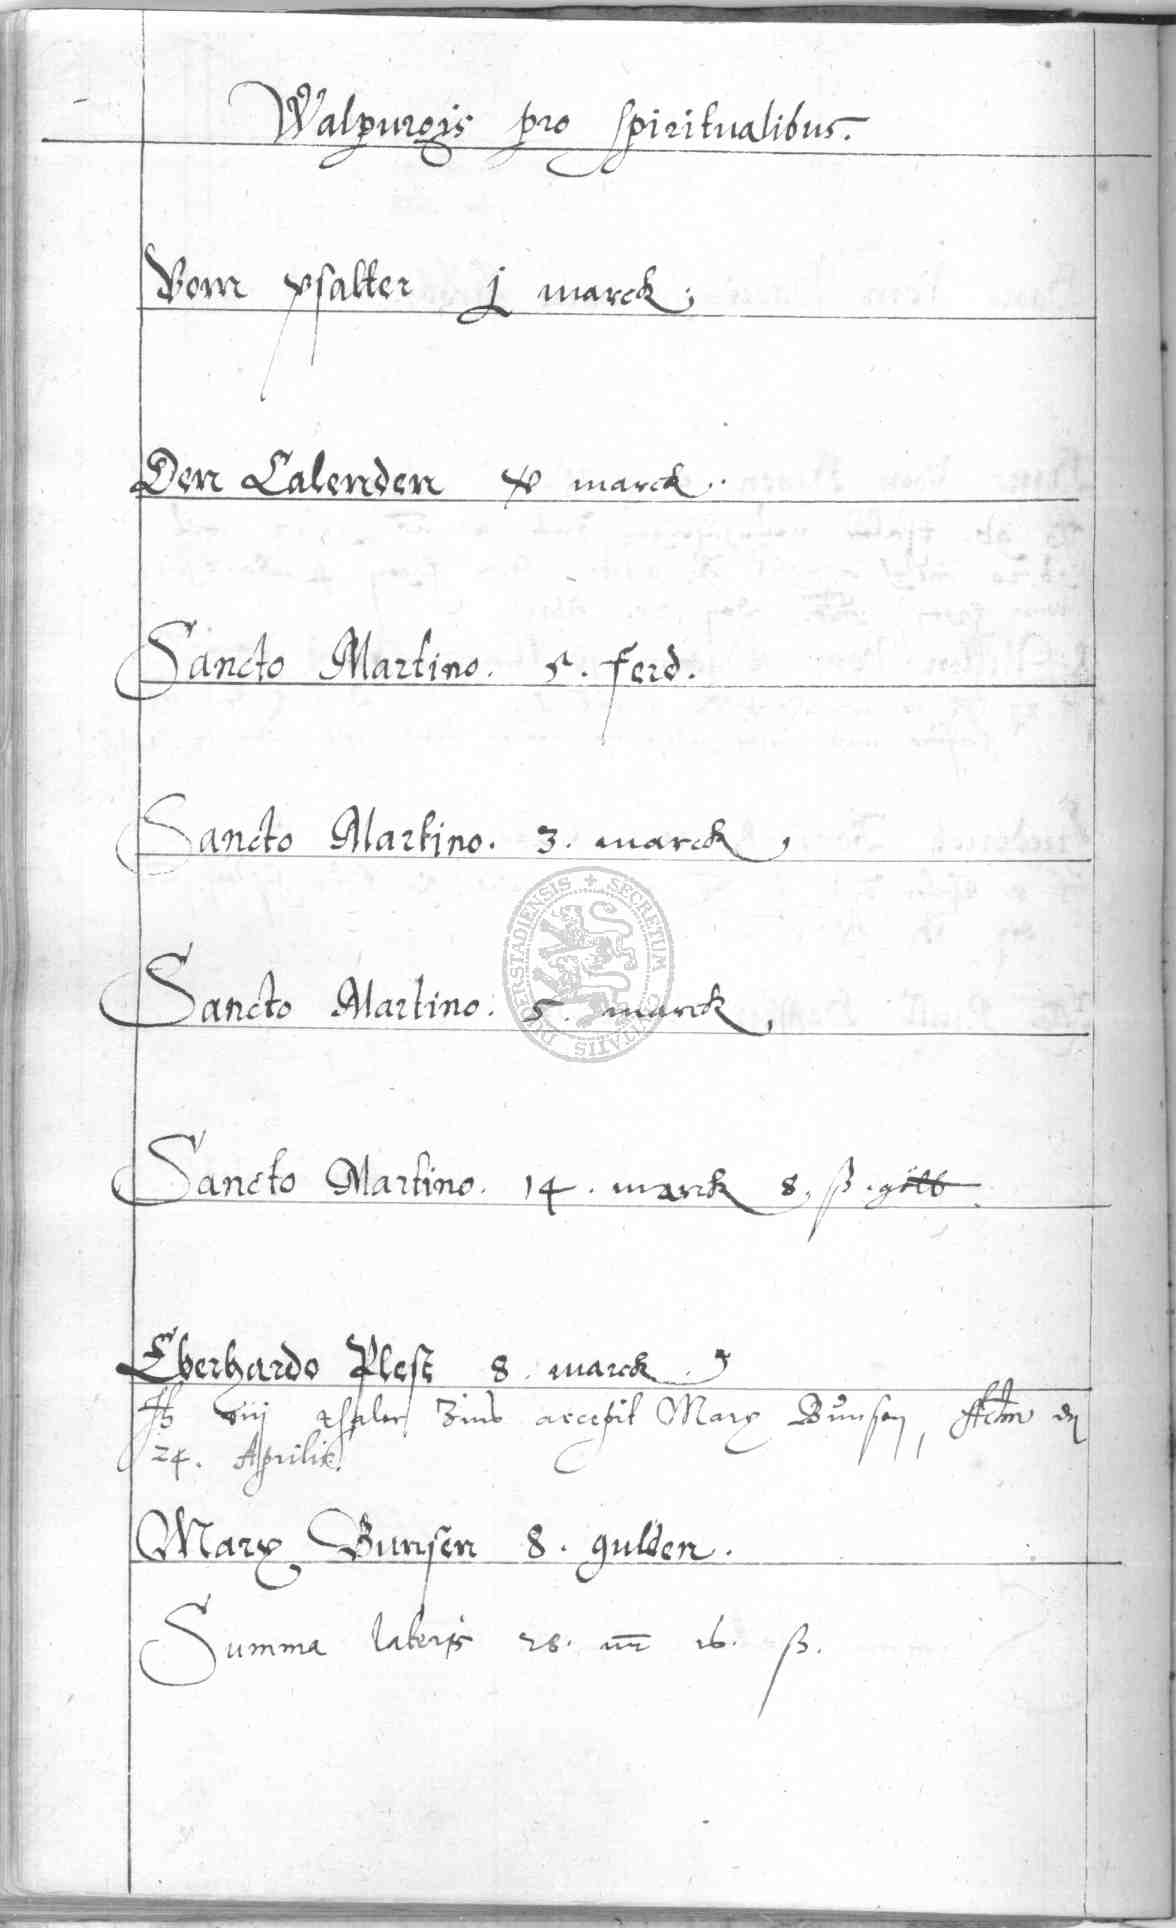 Walpurgis pro spiritualibus.
Vom psalter j marck;
Den Calenden x marck.
Sancto Martino. 5. ferd.
Sancto Martino. 3. marck,
SECRETUM CIVITATIS DUDERSTADIENSIS
Sancto Martino: 5. marck,
Sancto Martino. 14. marck 8. ß.
Eberhardo Plest 8. marck.
viij thaler Zins accepit Marx Bunsen, Actum
24. Aprilis.
Marx Bunsen 8. gulden.
Summa lateris 28. mr 16. ß.